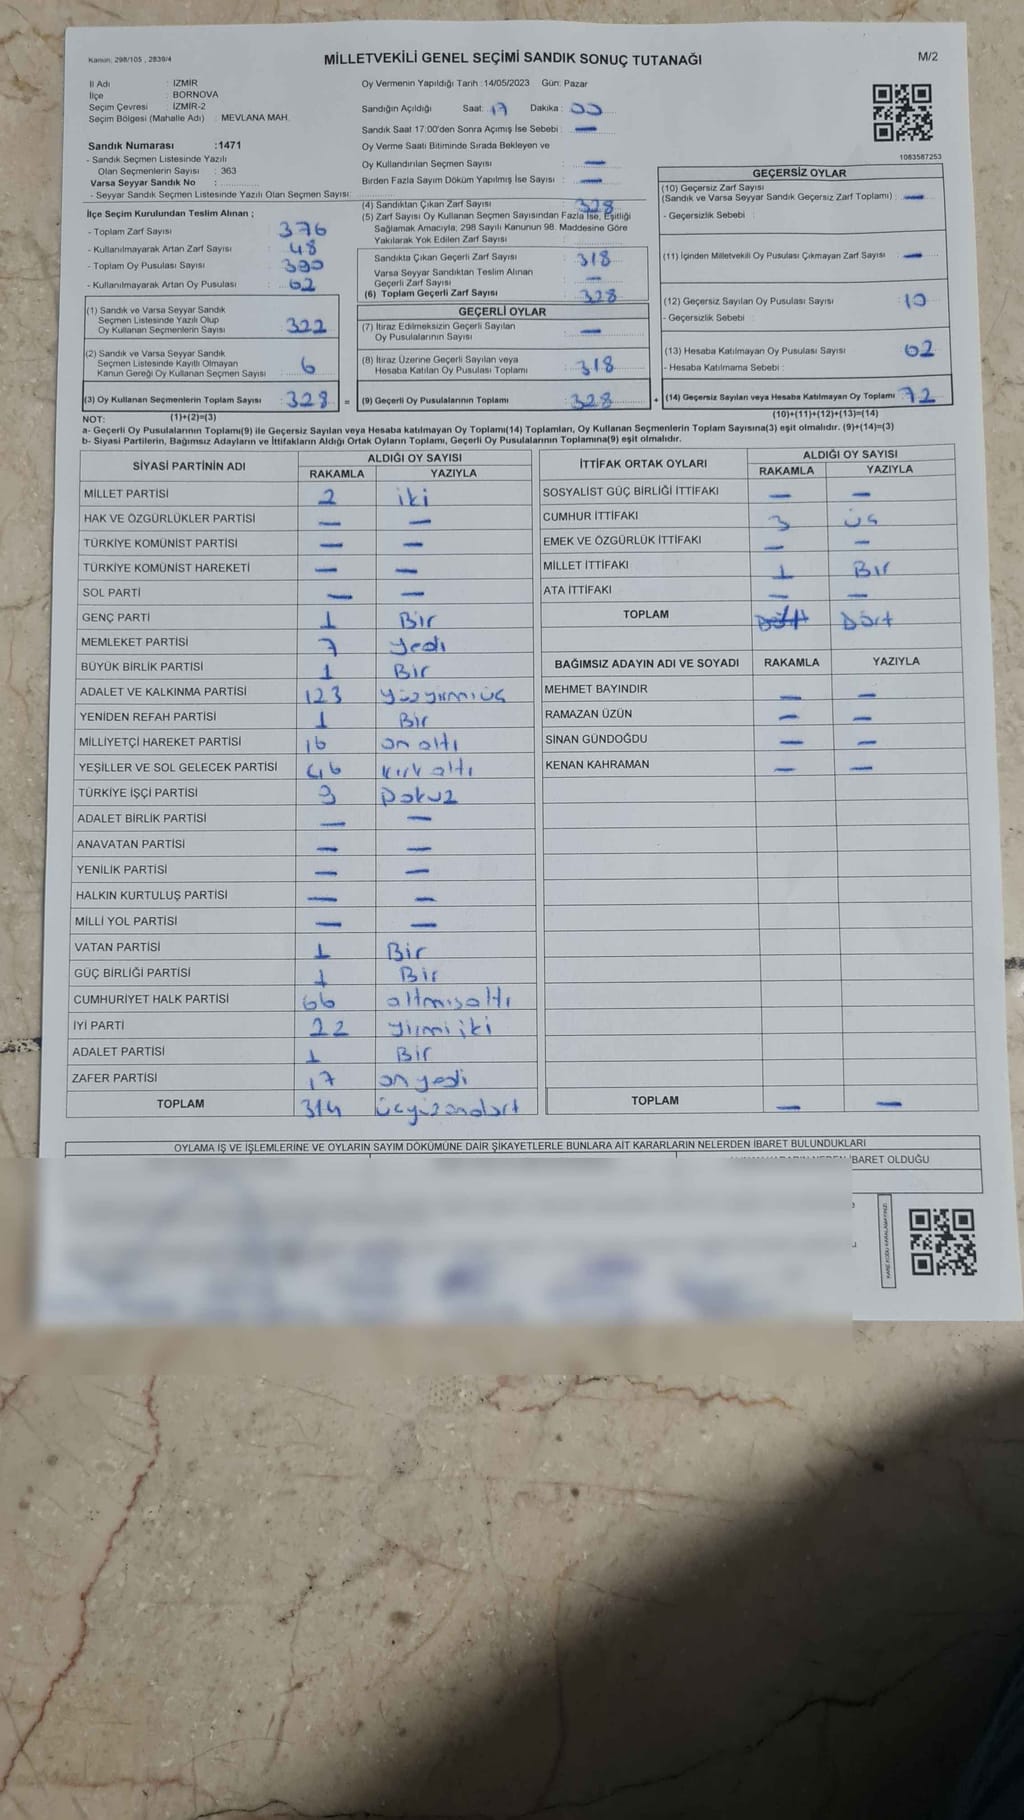 Kanun, 298/105 , 2839/4
MİLLETVEKİLİ GENEL SEÇİMİ SANDIK SONUÇ TUTANAĞI
M/2
İl Adı : İZMİR
İlçe : BORNOVA
Seçim Çevresi : İZMİR-2
Seçim Bölgesi (Mahalle Adı) : MEVLANA MAH.
Oy Vermenin Yapıldığı Tarih :14/05/2023 Gün: Pazar
Sandığın Açıldığı Saat: 17 Dakika : 00
Sandık Saat 17:00'den Sonra Açımış İse Sebebi : —
Oy Verme Saati Bitiminde Sırada Bekleyen ve
Oy Kullandırılan Seçmen Sayısı : —
Birden Fazla Sayım Döküm Yapılmış İse Sayısı : —
1083587253
Sandık Numarası :1471
- Sandık Seçmen Listesinde Yazılı
Olan Seçmenlerin Sayısı : 363
Varsa Seyyar Sandık No :
- Seyyar Sandık Seçmen Listesinde Yazılı Olan Seçmen Sayısı:
İlçe Seçim Kurulundan Teslim Alınan ;
- Toplam Zarf Sayısı : 376
- Kullanılmayarak Artan Zarf Sayısı : 48
- Toplam Oy Pusulası Sayısı :
- Kullanılmayarak Artan Oy Pusulası : 62
(1) Sandık ve Varsa Seyyar Sandık
Seçmen Listesinde Yazılı Olup
Oy Kullanan Seçmenlerin Sayısı : 322
(2) Sandık ve Varsa Seyyar Sandık
Seçmen Listesinde Kayıtlı Olmayan
Kanun Gereği Oy Kullanan Seçmen Sayısı : 6
(3) Oy Kullanan Seçmenlerin Toplam Sayısı : 328 =
(1)+(2)=(3)
(4) Sandıktan Çıkan Zarf Sayısı : 328
(5) Zarf Sayısı Oy Kullanan Seçmen Sayısından Fazla İse, Eşitliği
Sağlamak Amacıyla; 298 Sayılı Kanunun 98. Maddesine Göre
Yakılarak Yok Edilen Zarf Sayısı :
Sandıkta Çıkan Geçerli Zarf Sayısı : 318
Varsa Seyyar Sandıktan Teslim Alınan
Geçerli Zarf Sayısı : —
(6) Toplam Geçerli Zarf Sayısı : 328
GEÇERLİ OYLAR
(7) İtiraz Edilmeksizin Geçerli Sayılan
Oy Pusulalarının Sayısı : —
(8) İtiraz Üzerine Geçerli Sayılan veya
Hesaba Katılan Oy Pusulası Toplamı : 318
(9) Geçerli Oy Pusulalarının Toplamı : 328 +
GEÇERSİZ OYLAR
(10) Geçersiz Zarf Sayısı
(Sandık ve Varsa Seyyar Sandık Geçersiz Zarf Toplamı) : —
- Geçersizlik Sebebi :
(11) İçinden Milletvekili Oy Pusulası Çıkmayan Zarf Sayısı : —
(12) Geçersiz Sayılan Oy Pusulası Sayısı : 10
- Geçersizlik Sebebi :
(13) Hesaba Katılmayan Oy Pusulası Sayısı : 62
- Hesaba Katılmama Sebebi :
(14) Geçersiz Sayılan veya Hesaba Katılmayan Oy Toplamı : 72
(10)+(11)+(12)+(13)=(14)
NOT:
a- Geçerli Oy Pusulalarının Toplamı(9) ile Geçersiz Sayılan veya Hesaba katılmayan Oy Toplamı(14) Toplamları, Oy Kullanan Seçmenlerin Toplam Sayısına(3) eşit olmalıdır. (9)+(14)=(3)
b- Siyasi Partilerin, Bağımsız Adayların ve İttifakların Aldığı Ortak Oyların Toplamı, Geçerli Oy Pusulalarının Toplamına(9) eşit olmalıdır.
SİYASİ PARTİNİN ADI ALDIĞI OY SAYISI
RAKAMLA YAZIYLA
MİLLET PARTİSİ 2 iki
HAK VE ÖZGÜRLÜKLER PARTİSİ — —
TÜRKİYE KOMÜNİST PARTİSİ — —
TÜRKİYE KOMÜNİST HAREKETİ — —
SOL PARTİ — —
GENÇ PARTİ 1 Bir
MEMLEKET PARTİSİ 7 yedi
BÜYÜK BİRLİK PARTİSİ 1 Bir
ADALET VE KALKINMA PARTİSİ 123 yüzyirmiüç
YENİDEN REFAH PARTİSİ 1 Bir
MİLLİYETÇİ HAREKET PARTİSİ 16 on altı
YEŞİLLER VE SOL GELECEK PARTİSİ 46 kırk altı
TÜRKİYE İŞÇİ PARTİSİ 9 Dokuz
ADALET BİRLİK PARTİSİ — —
ANAVATAN PARTİSİ — —
YENİLİK PARTİSİ — —
HALKIN KURTULUŞ PARTİSİ — —
MİLLİ YOL PARTİSİ — —
VATAN PARTİSİ 1 Bir
GÜÇ BİRLİĞİ PARTİSİ 1 Bir
CUMHURİYET HALK PARTİSİ 66 altmışaltı
İYİ PARTİ 22 yirmi iki
ADALET PARTİSİ 1 Bir
ZAFER PARTİSİ 17 on yedi
TOPLAM 314 üçyüzondört
İTTİFAK ORTAK OYLARI ALDIĞI OY SAYISI
RAKAMLA YAZIYLA
SOSYALİST GÜÇ BİRLİĞİ İTTİFAKI — —
CUMHUR İTTİFAKI 3 üç
EMEK VE ÖZGÜRLÜK İTTİFAKI — —
MİLLET İTTİFAKI 1 Bir
ATA İTTİFAKI — —
TOPLAM Dört
BAĞIMSIZ ADAYIN ADI VE SOYADI RAKAMLA YAZIYLA
MEHMET BAYINDIR — —
RAMAZAN ÜZÜN — —
SİNAN GÜNDOĞDU — —
KENAN KAHRAMAN — —
TOPLAM — —
OYLAMA İŞ VE İŞLEMLERİNE VE OYLARIN SAYIM DÖKÜMÜNE DAİR ŞİKAYETLERLE BUNLARA AİT KARARLARIN NELERDEN İBARET BULUNDUKLARI
İBARET OLDUĞU
KARE KODU KARALAMAYINIZ!